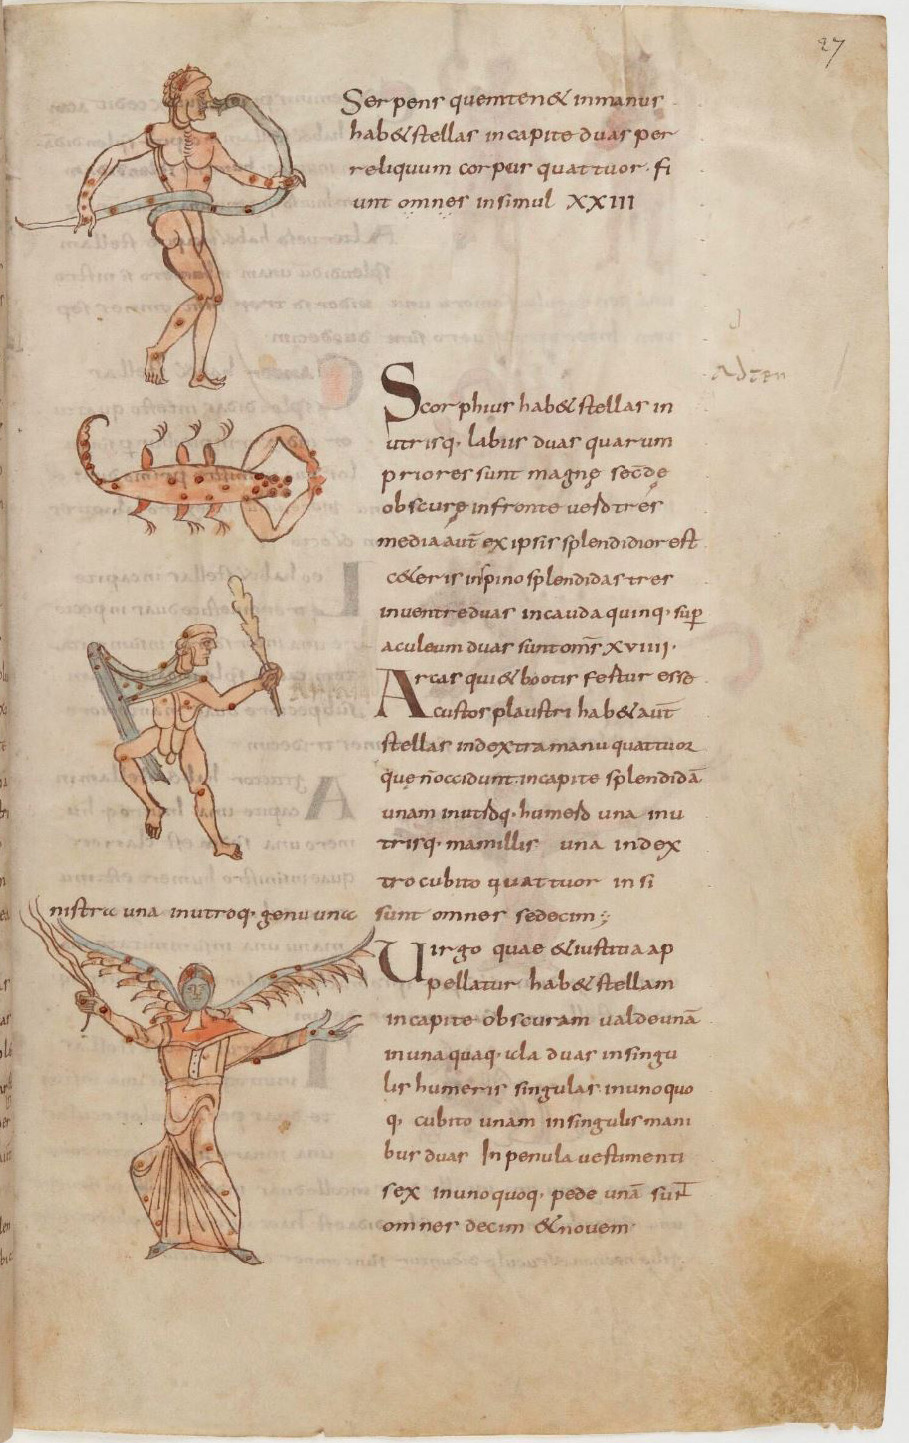 27
Serpens quem ten& inmanus
hab& stellas incapite duas per
reliquum corpus quattuor· fi
unt omnes insimul XXIII
Scorphius hab& stellas in
utrisq· labiis duas quarum
priores sunt magnę secd̄e
obscurę infronte
media aut̄ ex ipsis splendidior est
c&eris inspino splendidas tres
inventre duas incauda quinq· sup̄
aculeum duas sunt om̄s XVIIII·
Arcas qui & bootis fertur esse
custos plaustri hab& aut̄
stellas indextra manu quattuor
que n̄ occidunt· incapite splendidā
unam inutq· una inu
trisq· mamillis una index
tro cubito quattuor insi
nistra una inutroq· genu una sunt omnes sedecim;
Virgo quae & iustitia ap
pellatur hab& stellam
incapite obscuram valde unā
inuna quaq· ala duas insingu
lis humeris singulas inuno quo
q· cubito unam insingulis mani
bus duas In penula vestimenti
sex inuno quoq· pede unā sunt
omnes decim & novem·